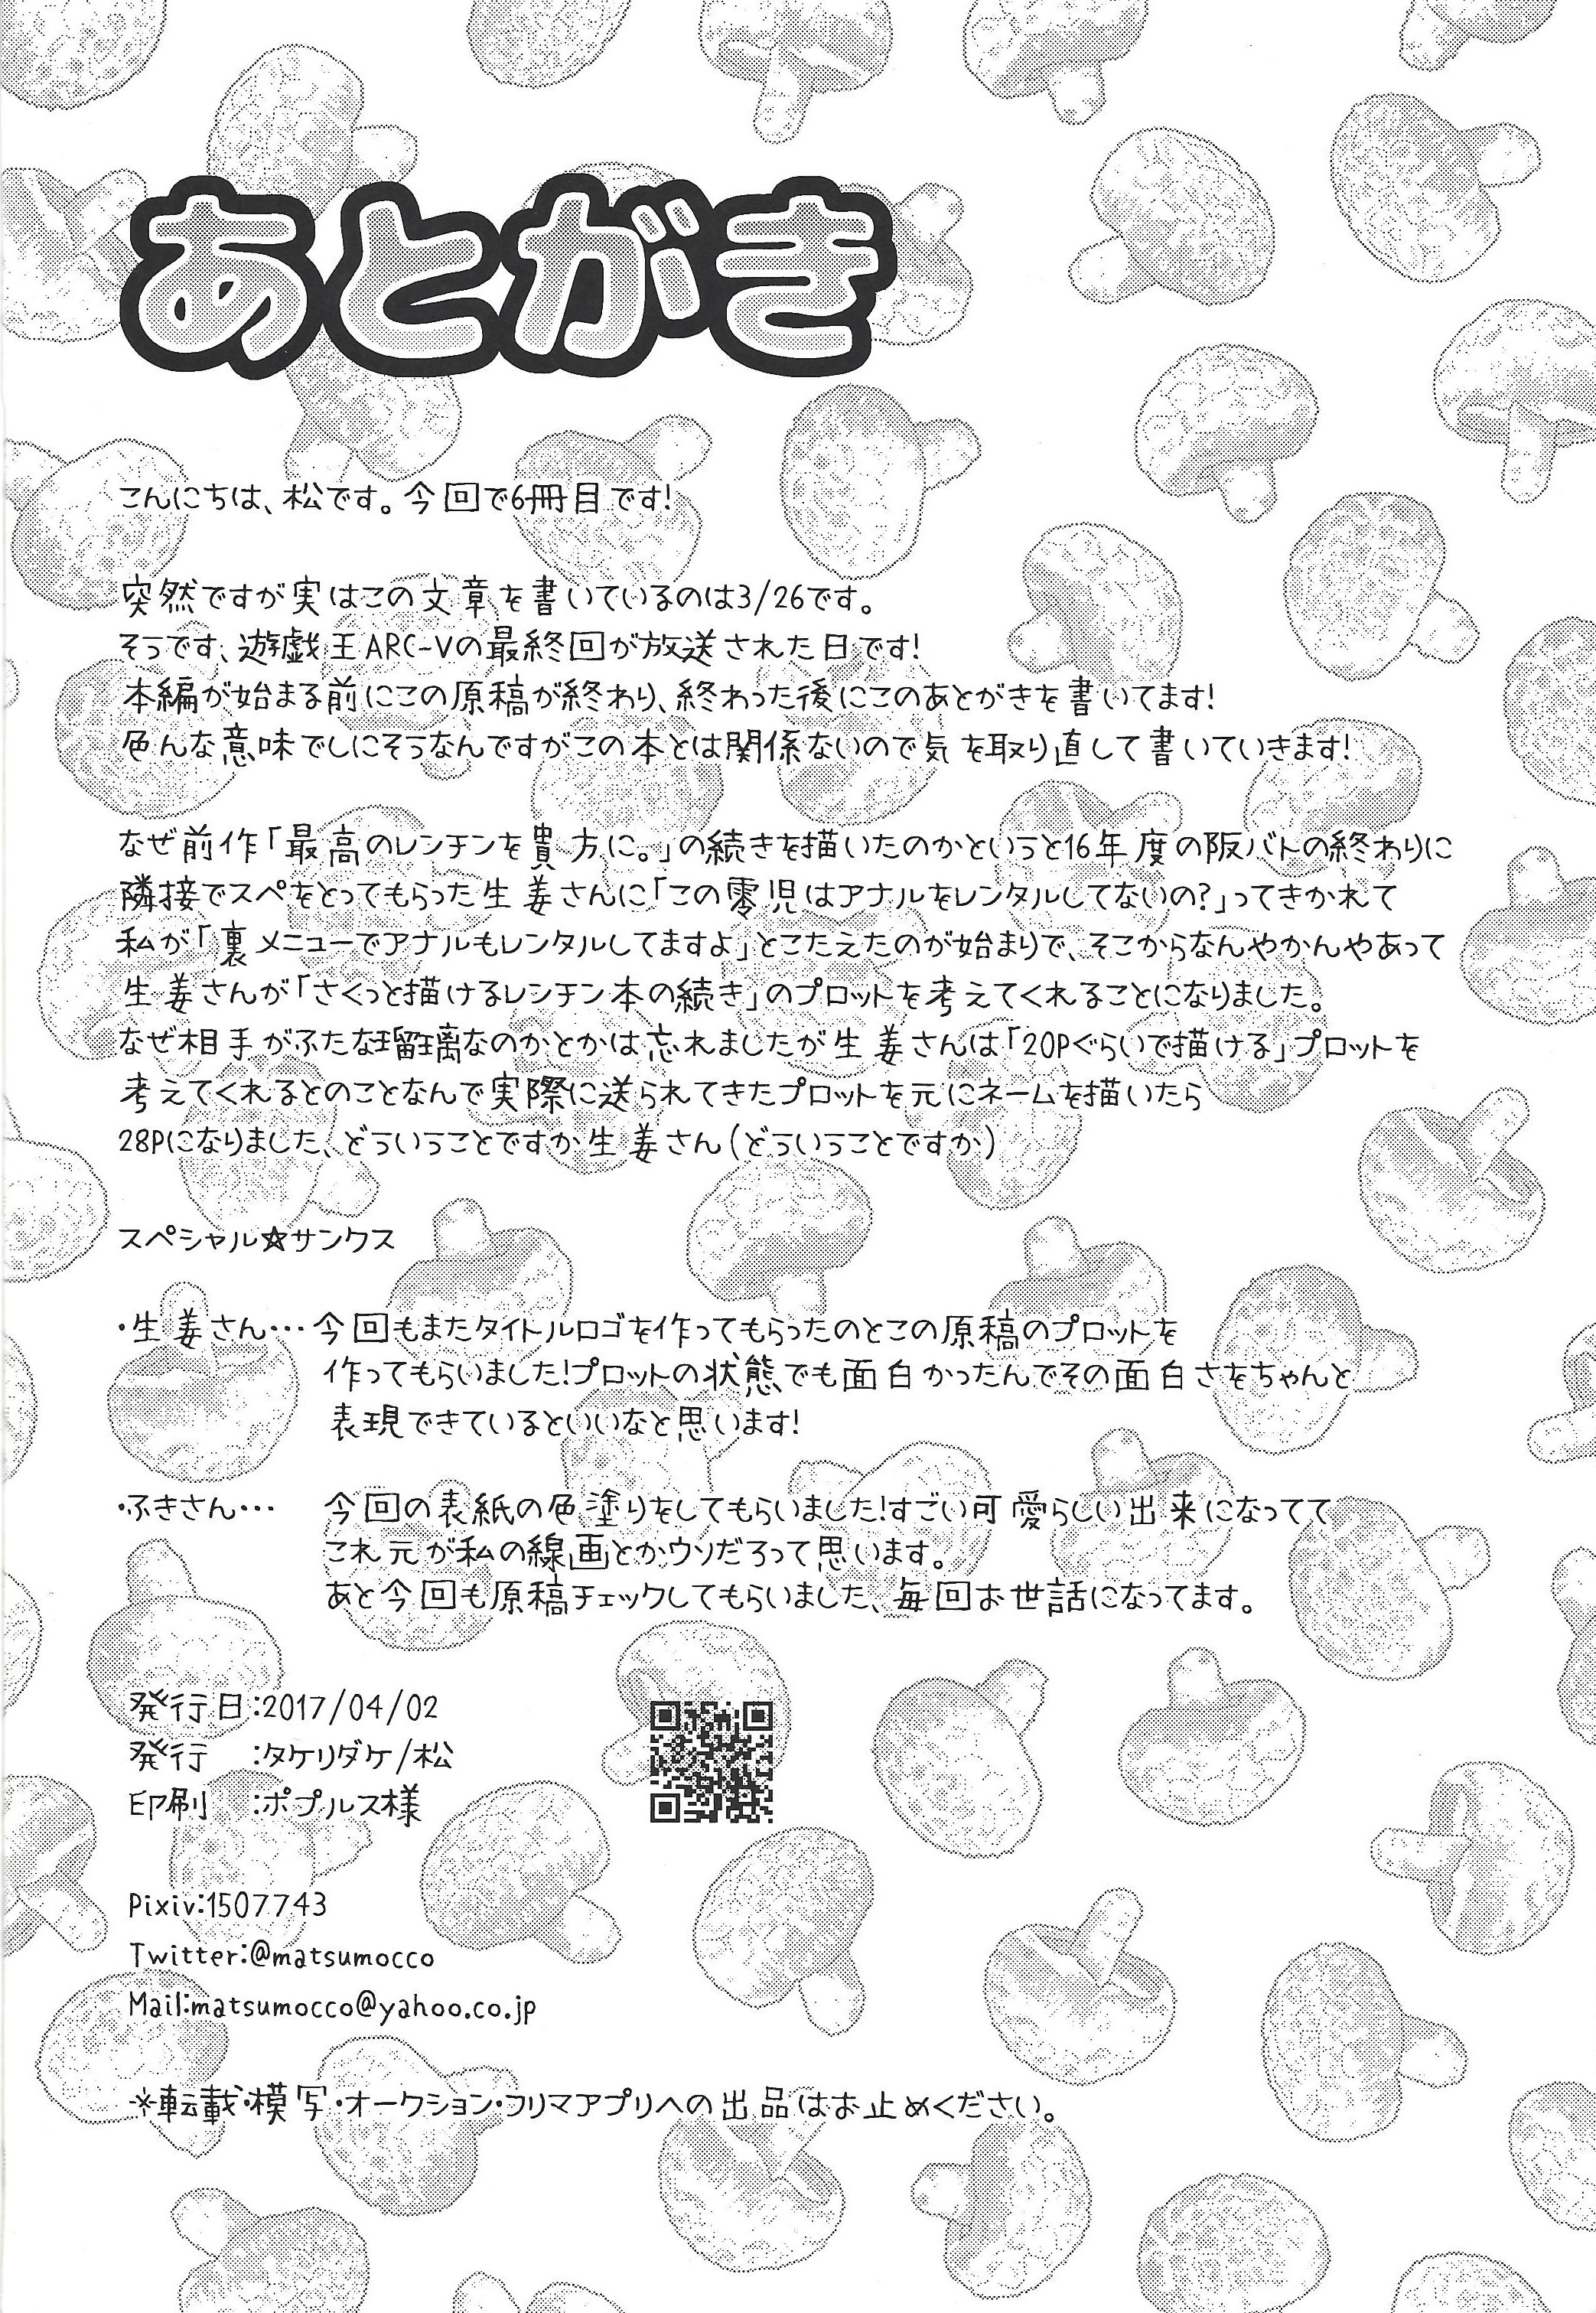 あとがき
こんにちは、松です。今回で6冊目です!
突然ですが実はこの文章を書いているのは3/26です。
そうです、遊戯王ARC-Vの最終回が放送された日です!
本編が始まる前にこの原稿が終わり、終わった後にこのあとがきを書いてます!
色んな意味でしにそうなんですがこの本とは関係ないので気を取り直して書いていきます!
なぜ前作「最高のレンチンを貴方に。」の続きを描いたのかというと16年度の阪バトの終わりに
隣接でスペをとってもらった生姜さんに「この零児はアナルをレンタルしてないの?」ってきかれて
私が「裏メニューでアナルもレンタルしてますよ」とこたえたのが始まりで、そこからなんやかんやあって
生姜さんが「さくっと描けるレンチン本の続き」のプロットを考えてくれることになりました。
なぜ相手がふたな瑠璃なのかとかは忘れましたが生姜さんは「20Pぐらいで描ける」プロットを
考えてくれるとのことなんで実際に送られてきたプロットを元にネームを描いたら
28Pになりました、どういうことですか生姜さん(どういうことですか)
スペシャル☆サンクス
・生姜さん・・・今回もまたタイトルロゴを作ってもらったのとこの原稿のプロットを
作ってもらいました!プロットの状態でも面白かったんでその面白さをちゃんと
表現できているといいなと思います!
・ふきさん・・・ 今回の表紙の色塗りをしてもらいました!すごい可愛らしい出来になってて
これ元が私の線画とかウソだろって思います。
あと今回も原稿チェックしてもらいました、毎回お世話になってます。
発行日:2017/04/02
発行 :タケリダケ/松
印刷 :ポプルス様
Pixiv:1507743
Twitter:@matsumocco
Mail:matsumocco@yahoo.co.jp
*転載・模写・オークション・フリマアプリへの出品はお止めください。